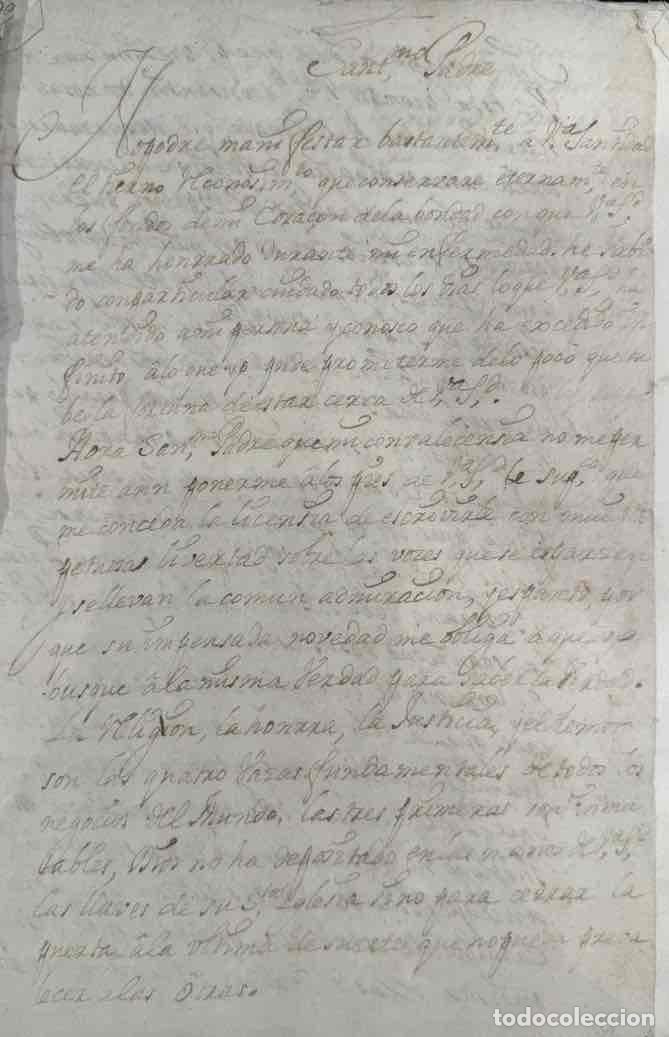 Sant.mo Padre
No podre manifestar bastantem.te a V.a Santidad
el tierno reconosim.to que conservare eternam.te en
los fondos de mi Corazon de la bondad con que V.a S.d
me ha honrrado durante mi enfermedad. he sabi-
do con particular cuidado todos los dias lo que V.a S.d ha
atendido a mi persona y conosco que ha excedido in
finito â lo que yo pude prometerme de lo poco que
be la fortuna de estar cerca de V.a S.d.
Aora Sant.mo Padre que mi convalecensia no me per
mite aun ponerme â los pies de V.a S.d le sup.co que
me conceda la licensia de escrivirle con una res
petuosa livertad sobre las vozes que se esparsen
y se llevan la comun admirasion, y espanto, por
que su impensada novedad me obliga a que
busque â la misma verdad para saber la verdad.
La Religion, la honrra, la Justicia, y el temor
son las quatro vazas fundamentales de todos los
negocios del Mundo. las tres primeras son inmu
tables, Dios no ha depositado en las manos de V.a S.d
las llaves de su S.ta Iglesia sino para cerrar la
puerta â la ultima de suerte que no pueda preva
lecer a las otras.
todocoleccion